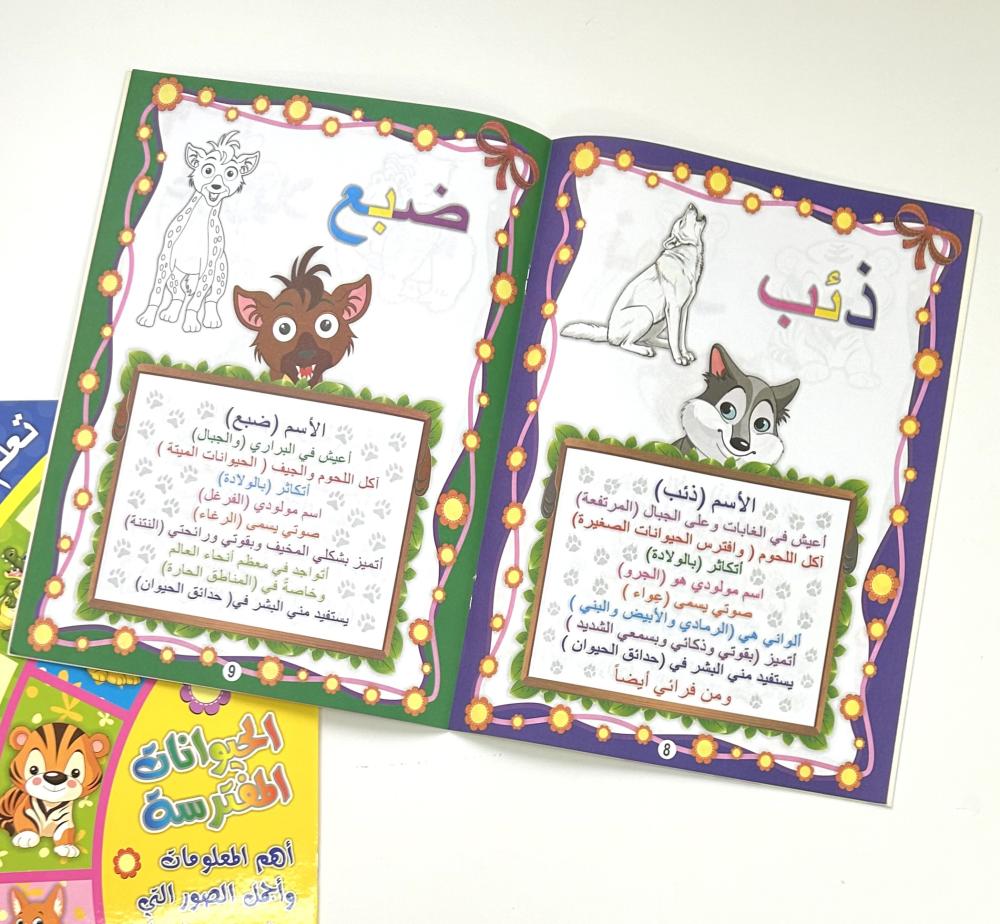 ذئب
الأسم (ذئب)
أعيش في الغابات وعلى الجبال (المرتفعة)
آكل اللحوم ( وافترس الحيوانات الصغيرة)
أتكاثر (بالولادة)
اسم مولودي هو (الجرو)
صوتي يسمى (عواء )
ألواني هي (الرمادي والأبيض والبني )
أتميز (بقوتي وذكائي وبسمعي الشديد )
يستفيد مني البشر في (حدائق الحيوان )
ومن فرائي أيضاً
8
ضبع
الأسم (ضبع)
أعيش في البراري (والجبال)
آكل اللحوم والجيف ( الحيوانات الميتة )
أتكاثر (بالولادة)
اسم مولودي (الفرغل)
صوتي يسمى (الرغاء)
أتميز بشكلي المخيف وبقوتي ورائحتي (النتنة)
أتواجد في معظم أنحاء العالم
وخاصةً في (المناطق الحارة)
يستفيد مني البشر في( حدائق الحيوان)
9
الحيوانات
المفترسة
أهم المعلومات
وأجمل الصور التي